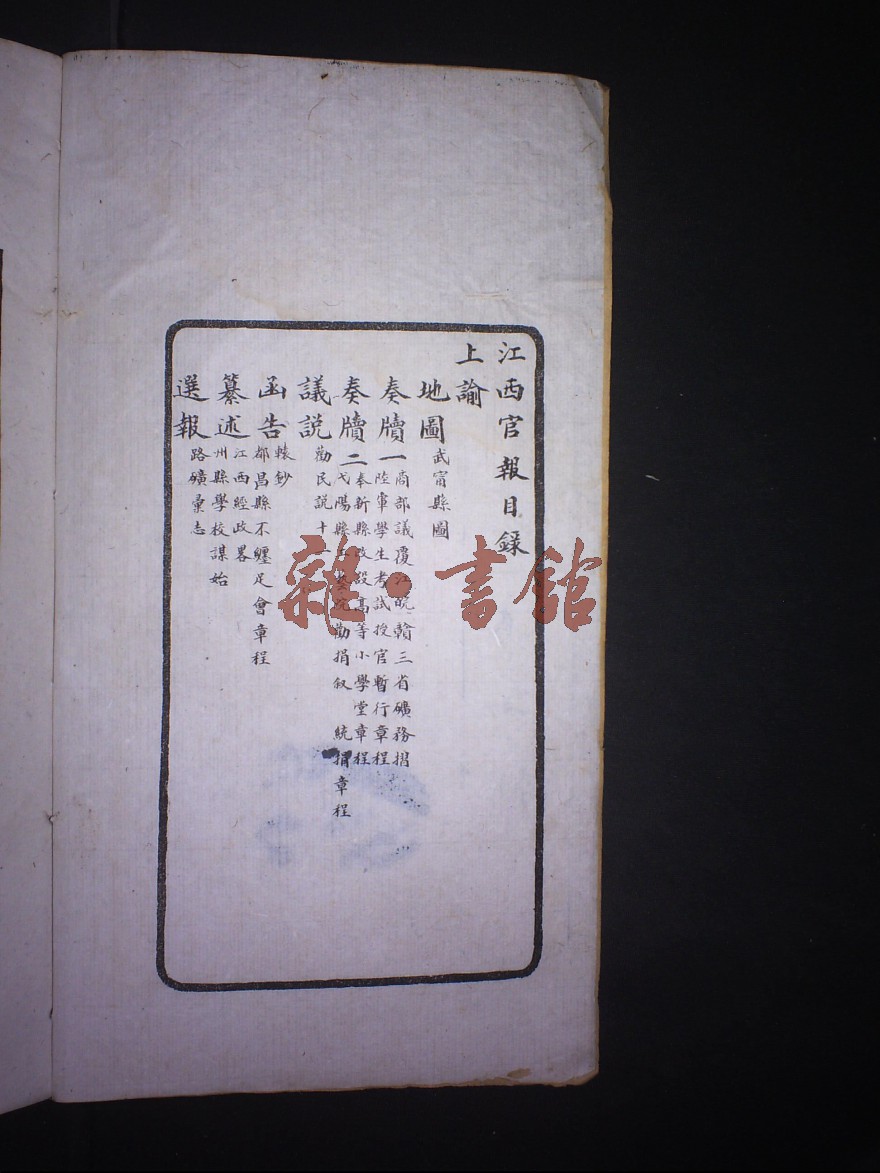 江西官報目錄
上諭
地圖 武甯縣圖
奏牘一 商部議覆江皖贛三省礦務摺
陸軍學生考試授官暫行章程
奏牘二 奉新縣改設高等小學堂章程
弋陽縣工藝院勸捐叙 統捐章程
議説 勸民説十一
函告 轅鈔
都昌縣不纏足會章程
纂述 江西經政畧
州縣學校謀始
選報 路礦彙志
雜·書館